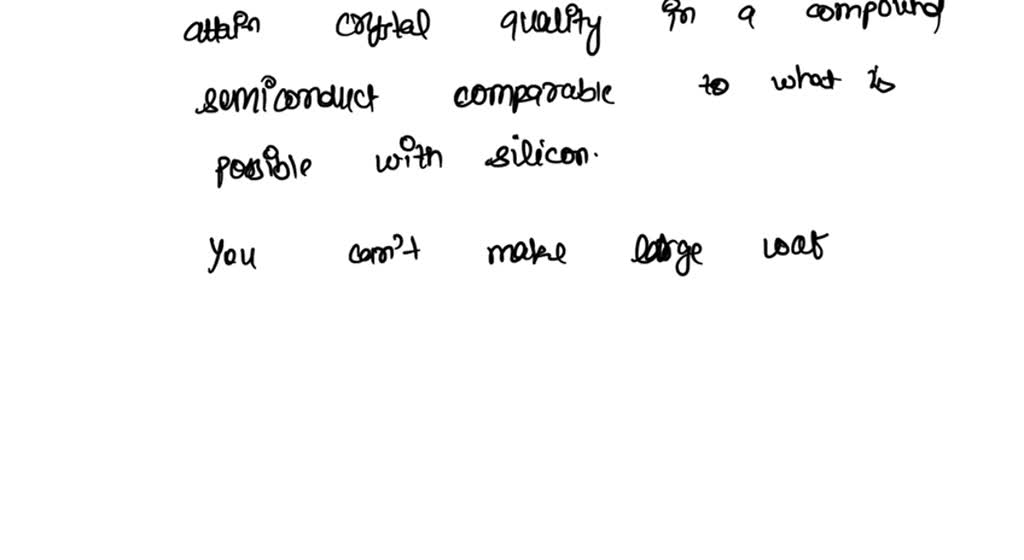 attain crystal quality in a compound
semiconduct comparable to what is
possible with silicon.
You can't make large waf